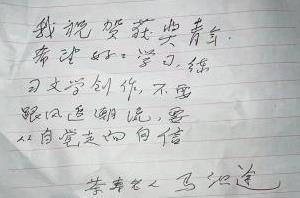 我祝贺获奖青年.
希望好好学习,练
习文学创作,不要
跟风追潮流,要
从自觉走向自信
马识途